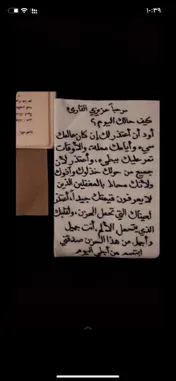 ١٠:٣٩
مرحباً عزيزي القارئ
كيف حالك اليوم؟
أود أن أعتذر لك إن كان عالمك
سيء وأيامك مملة، والأوقات
تمر عليك ببطيء، وأعتذر لأن
جميع من حولك خذلوك وآذوك
ولأنك محاط بالمغفلين الذين
لا يعرفون قيمتك جيداً، أعتذر
لعينيك التي تحمل الحزن، ولقلبك
الذي يتحمل الألم، أنت جميل
وأجمل من هذا الحزن صدقني
ابتسم من أجلي اليوم